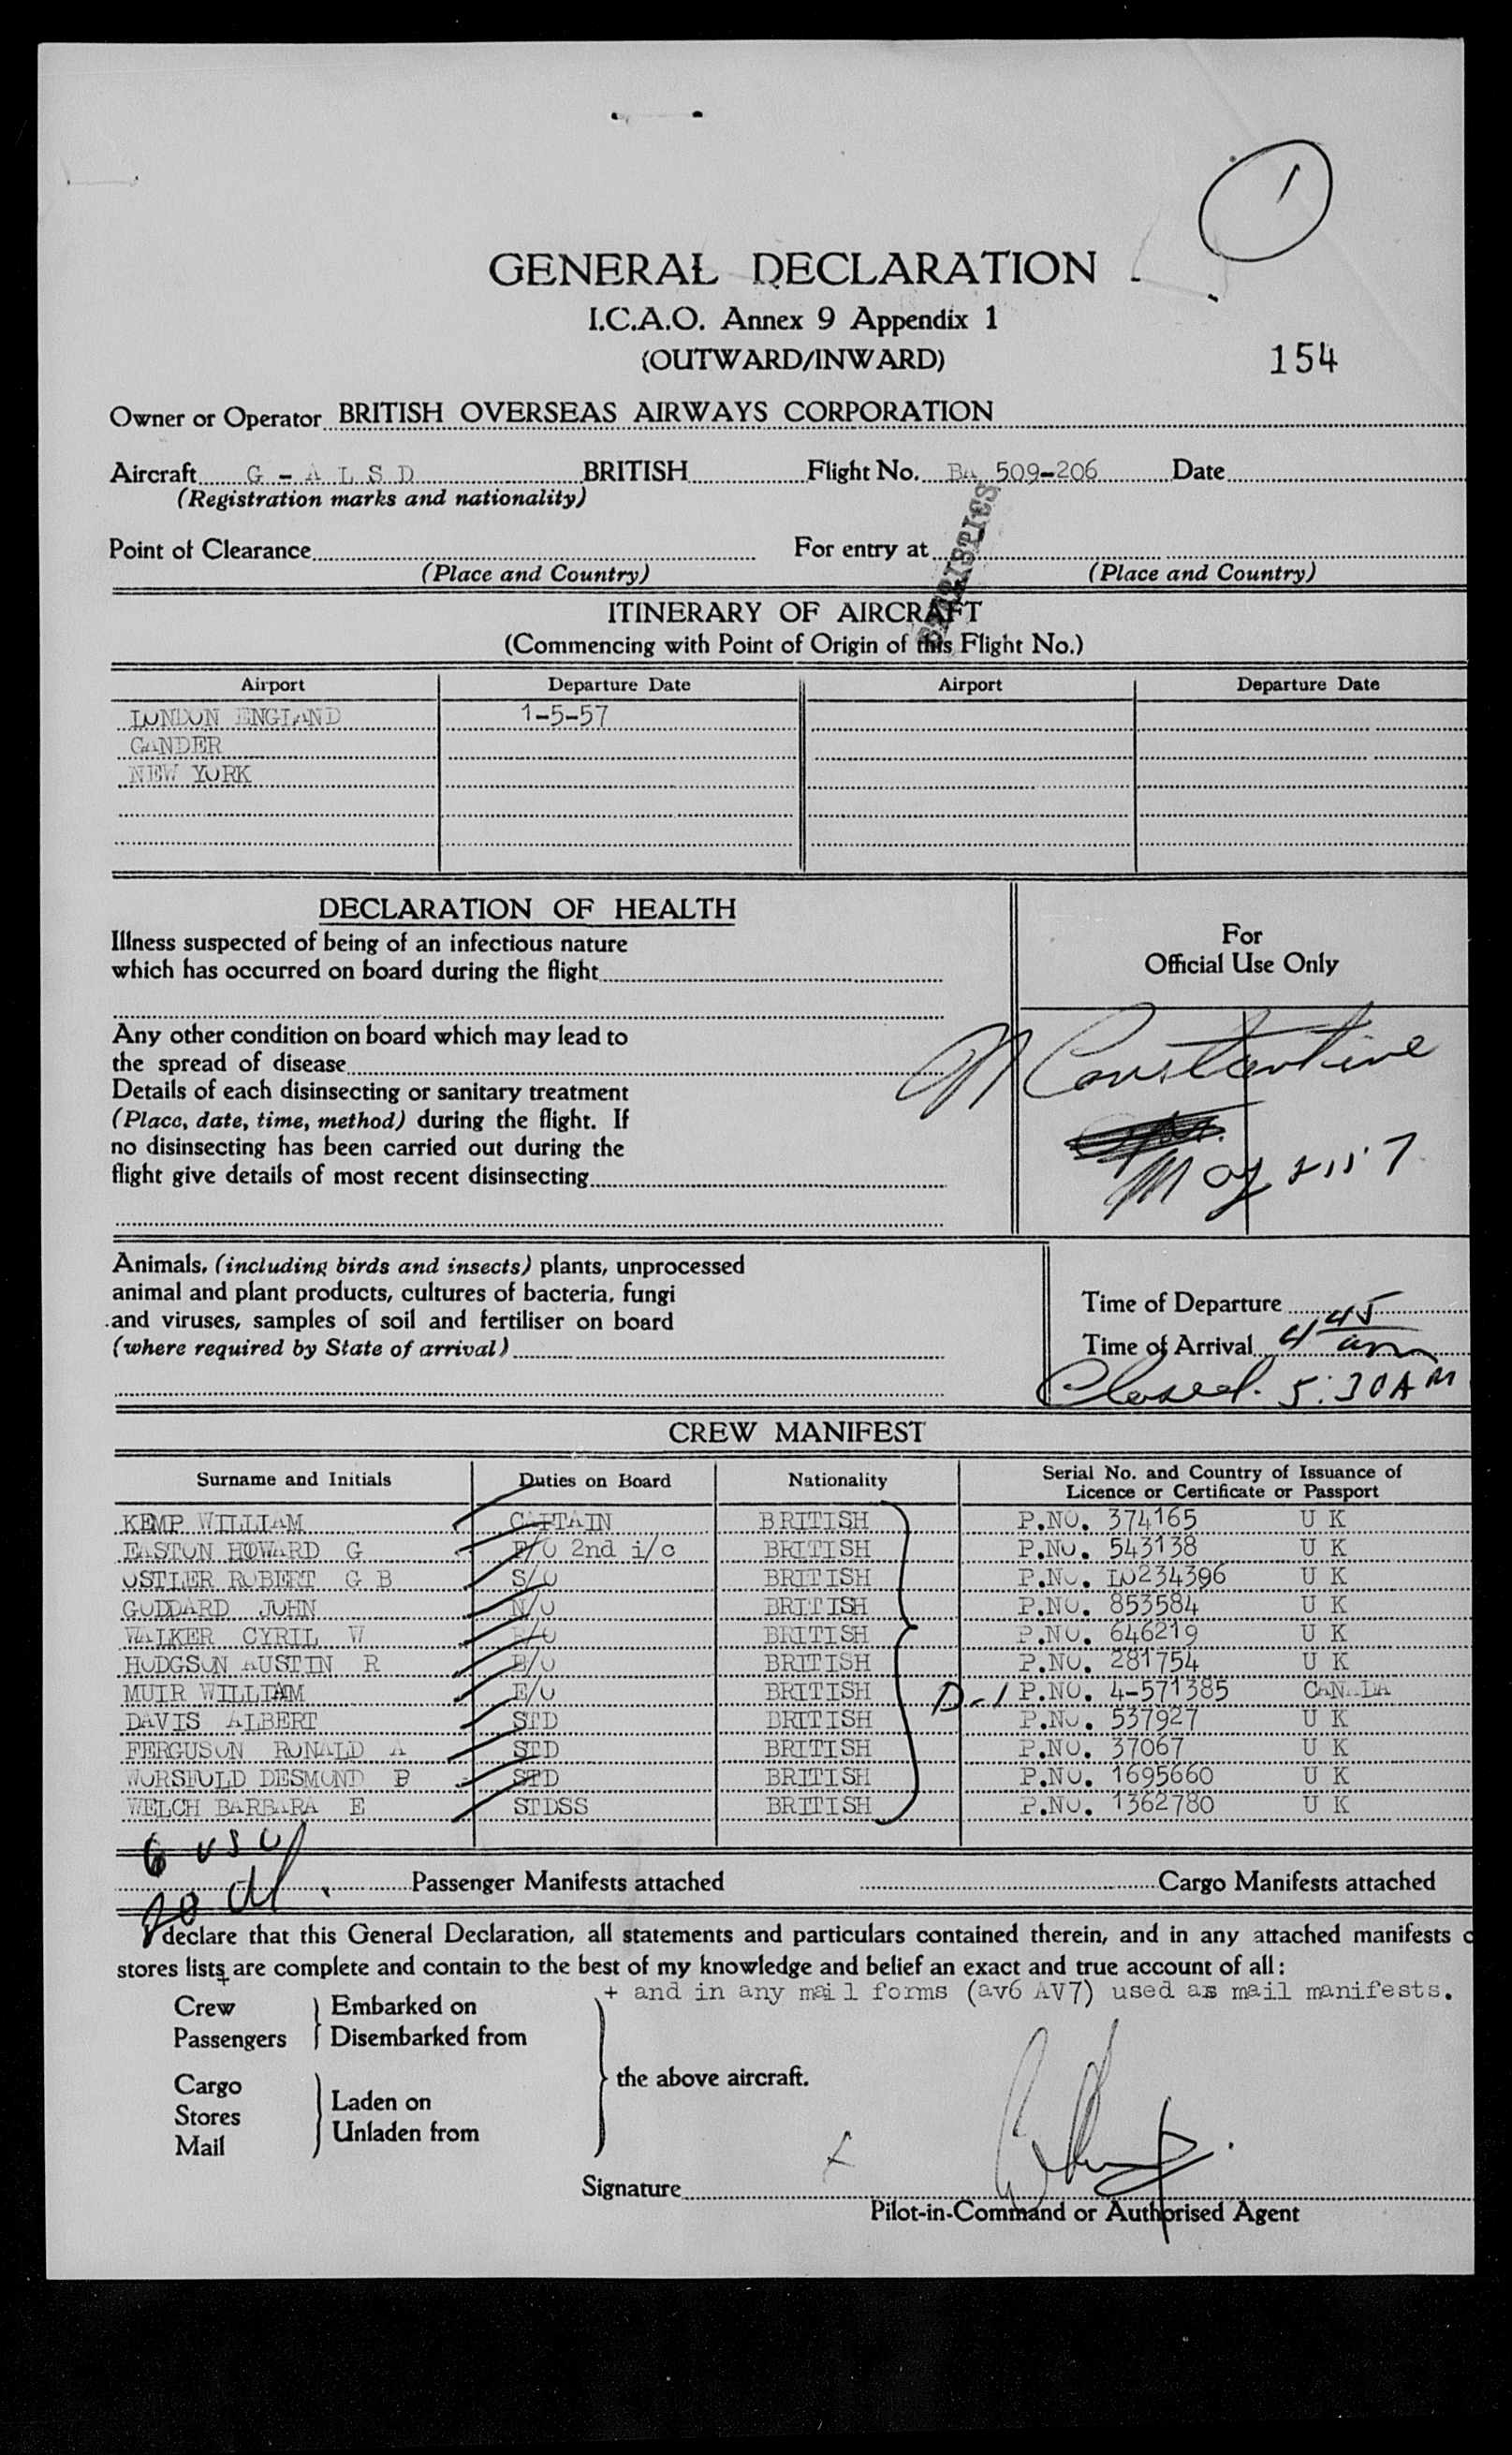 1
GENERAL DECLARATION
I.C.A.O. Annex 9 Appendix 1
(OUTWARD/INWARD)
154
Owner or Operator BRITISH OVERSEAS AIRWAYS CORPORATION
Aircraft G - A L S D BRITISH Flight No. BA 509-206 Date
(Registration marks and nationality)
STATISTICS
Point of Clearance For entry at
(Place and Country) (Place and Country)
ITINERARY OF AIRCRAFT
(Commencing with Point of Origin of this Flight No.)
Airport Departure Date Airport Departure Date
LONDON ENGLAND 1-5-57
GANDER
NEW YORK
DECLARATION OF HEALTH
Illness suspected of being of an infectious nature
which has occurred on board during the flight
For
Official Use Only
Any other condition on board which may lead to
the spread of disease
Details of each disinsecting or sanitary treatment
(Place, date, time, method) during the flight. If
no disinsecting has been carried out during the
flight give details of most recent disinsecting
Constantine
May
Animals, (including birds and insects) plants, unprocessed
animal and plant products, cultures of bacteria, fungi
and viruses, samples of soil and fertiliser on board
(where required by State of arrival)
Time of Departure
Time of Arrival 4 45 am
Closed. 5:30 AM
CREW MANIFEST
Surname and Initials Duties on Board Nationality Serial No. and Country of Issuance of
Licence or Certificate or Passport
KEMP WILLIAM CAPTAIN BRITISH P.NO. 374165 U K
EASTON HOWARD G F/O 2nd i/c BRITISH P.NO. 543138 U K
OSTLER ROBERT G B S/O BRITISH P.NO. LO234396 U K
GODDARD JOHN N/O BRITISH P.NO. 853584 U K
WALKER CYRIL W BRITISH P.NO. 646219 U K
HODGSON AUSTIN R E/O BRITISH P.NO. 281754 U K
MUIR WILLIAM E/O BRITISH D-1 P.NO. 4-571385 CANADA
DAVIS ALBERT STD BRITISH P.NO. 537927 U K
FERGUSON RONALD A STD BRITISH P.NO. 37067 U K
WORSFOLD DESMOND P STD BRITISH P.NO. 1695660 U K
WELCH BARBARA E STDSS BRITISH P.NO. 1362780 U K
6 USC
20 al
Passenger Manifests attached Cargo Manifests attached
declare that this General Declaration, all statements and particulars contained therein, and in any attached manifests
stores lists+ are complete and contain to the best of my knowledge and belief an exact and true account of all:
+ and in any mail forms (av6 AV7) used as mail manifests.
Crew Embarked on
Passengers Disembarked from
the above aircraft.
Cargo
Stores Laden on
Mail Unladen from
Signature X
Pilot-in-Command or Authorised Agent